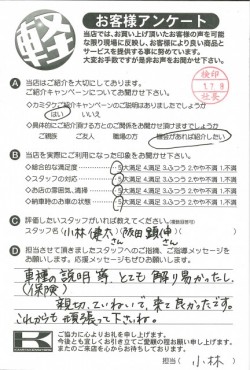 軽
お客様アンケート
当店では、お買い上げ頂いたお客様の声を可能
な限り現場に反映し、お客様により良い商品と
サービスを提供する事に努めています。
大変お手数ですが是非お声をお聞かせ下さい。
検印
社長
A 当店はご紹介を大切にしてあります。
ご紹介キャンペーンについてお聞かせ下さい。
◇カミタケご紹介キャンペーンのご説明はありましたでしょうか
はい いいえ
◇具体的にご紹介頂ける方とのご関係をお聞かせ頂けますでしょうか
ご親族 ご友人 職場の方 機会があれば紹介したい
B 当店を実際にご利用になった印象をお聞かせ下さい。
◇総合的な満足度 5.大満足 4.満足 3.ふつう 2.やや不満 1.不満
◇スタッフの対応 5.大満足 4.満足 3.ふつう 2.やや不満 1.不満
◇お店の雰囲気、清掃 5.大満足 4.満足 3.ふつう 2.やや不満 1.不満
◇納車時のお車の状態 5.大満足 4.満足 3.ふつう 2.やや不満 1.不満
C 評価したいスタッフがいれば教えてください。(複数回答可)
スタッフ名( 小林健太さん 阪田顕伸さん )
D 担当させて頂きましたスタッフへのご指摘、ご応援メッセージを
お願いします。応援メッセージもぜひお願いします。
車種の説明等、とても解り易かったし、
(保険)
親切、ていねいで、来て良かったです。
これからも頑張って下さいね。
ご協力に心よりお礼を申し上げます。
今後とも宜しくお引き立てご愛顧の程お願い申し上げます。
またのご来店を心からお待ちしております。
担当( 小林 )